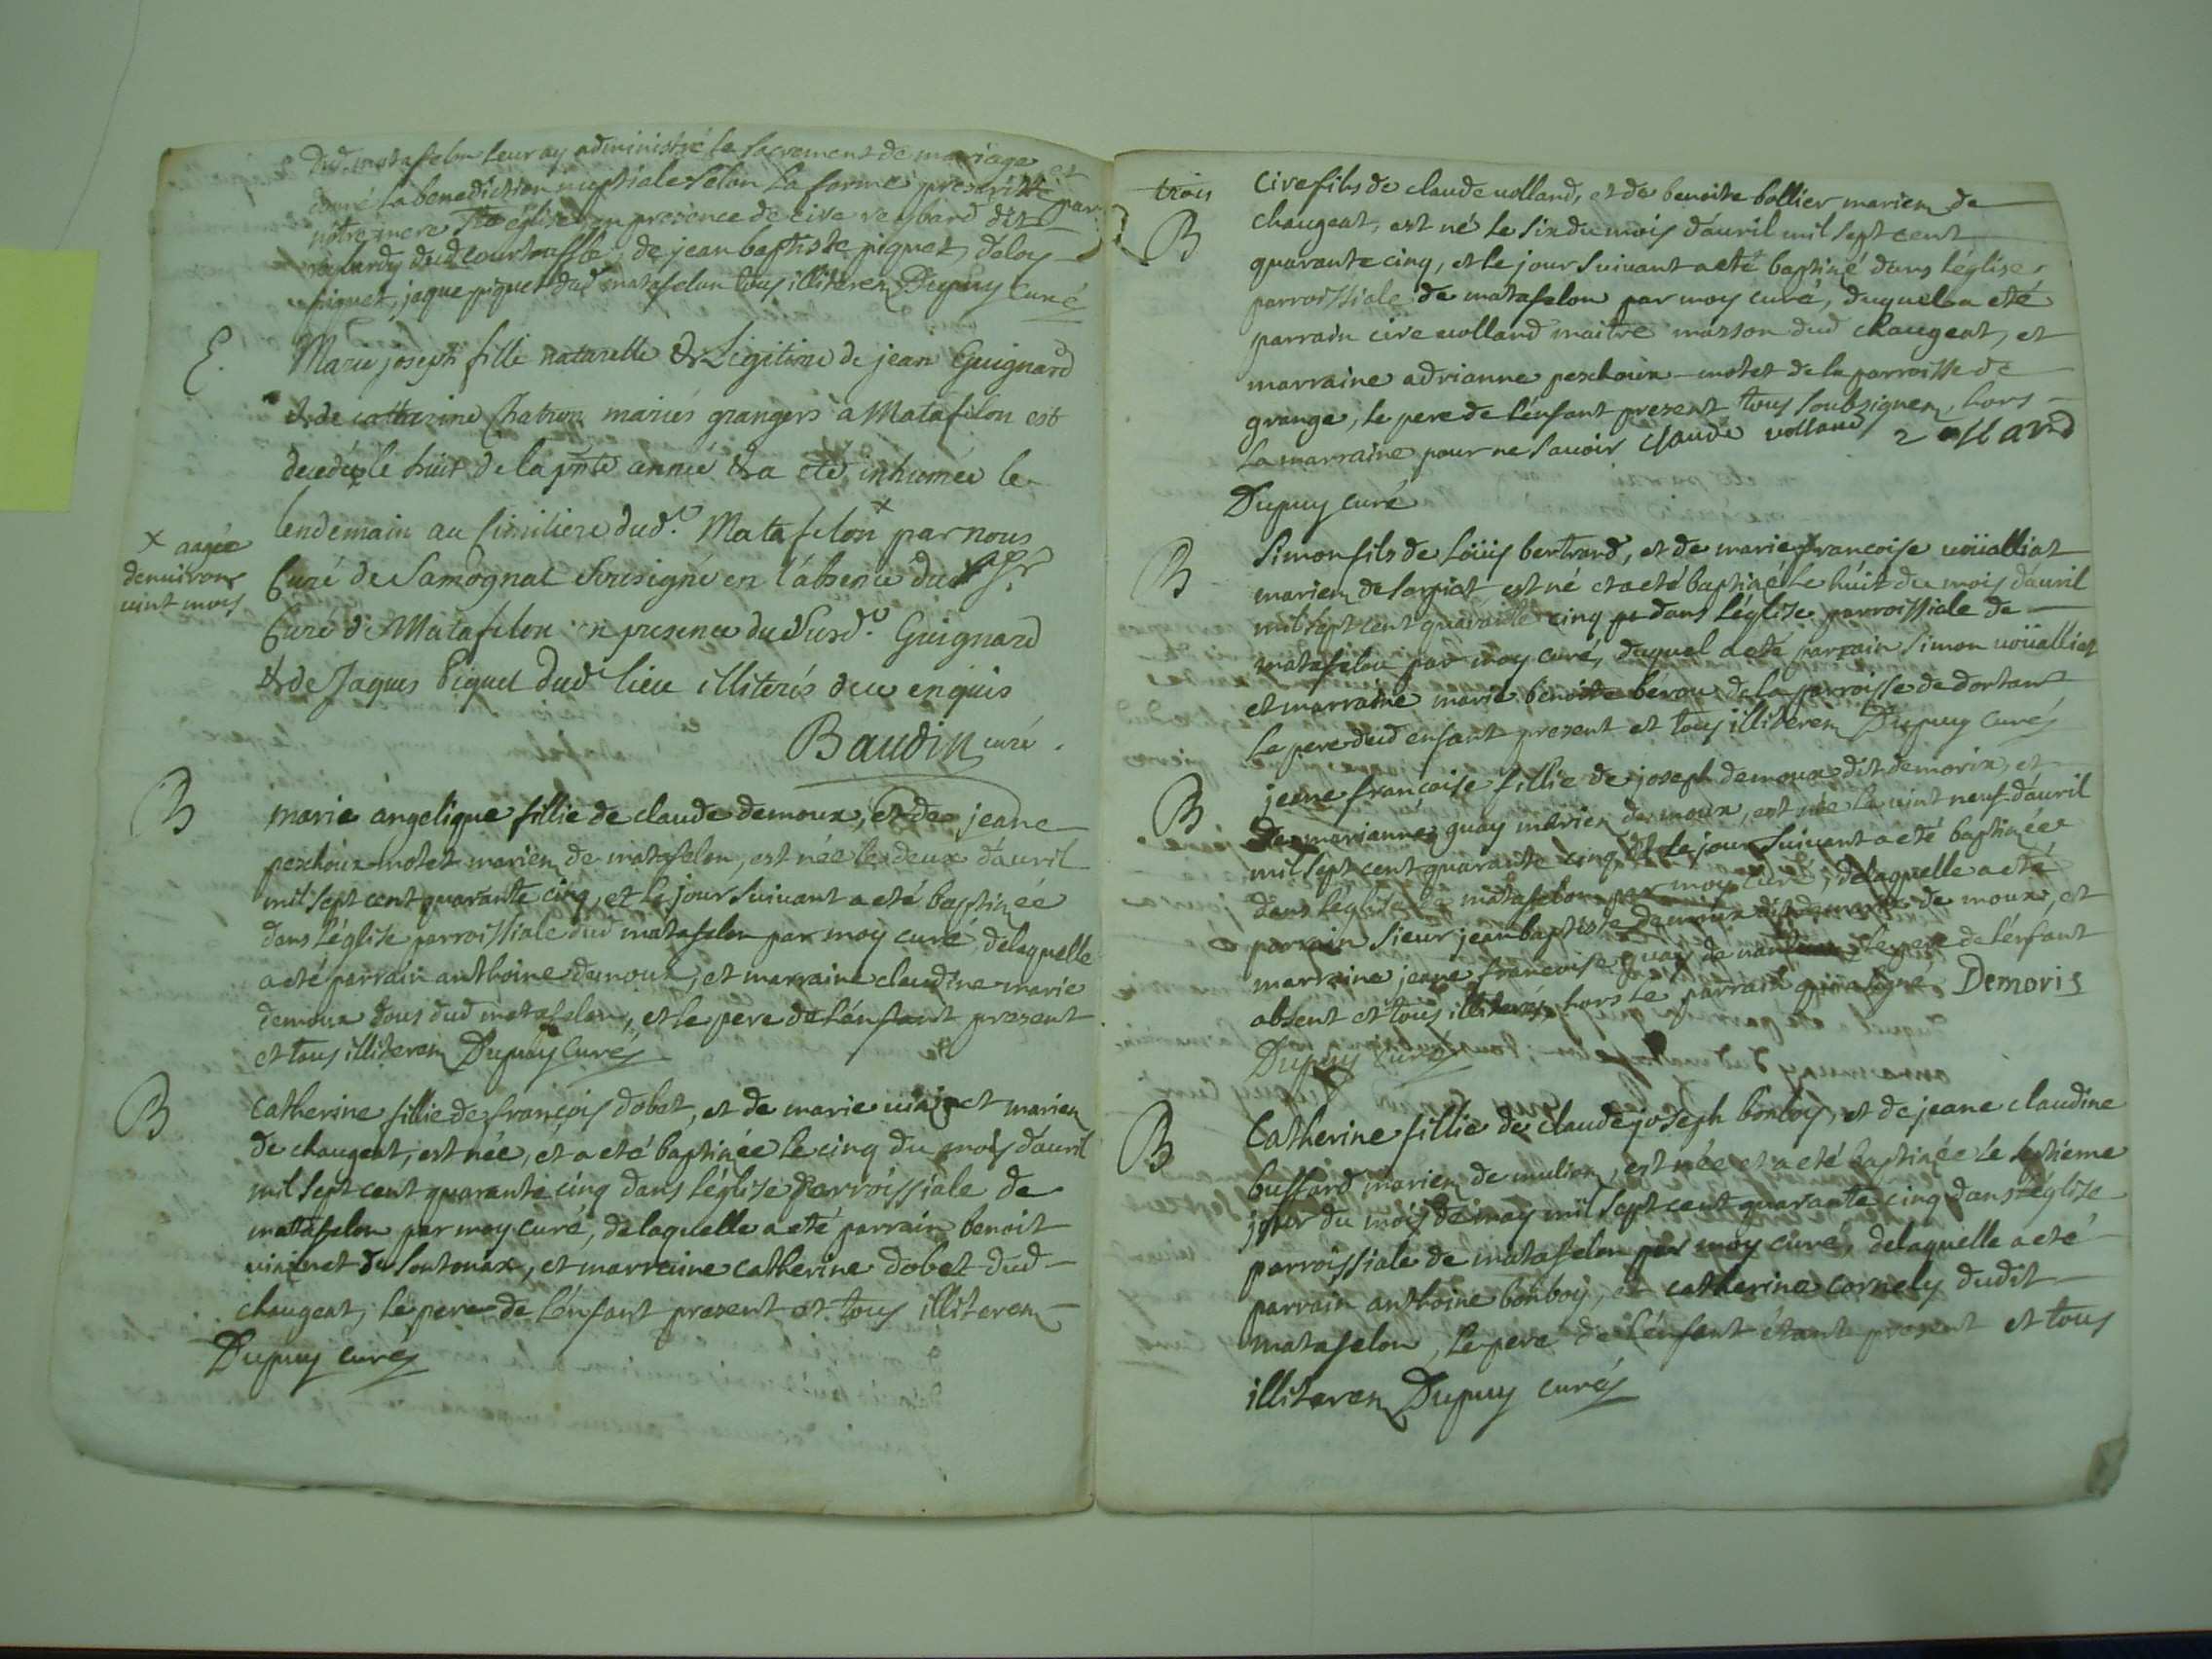 dud. matafelon leur ay administré le sacrement de mariage et
donné la benediction nuptiale selon la forme prescritte par
nôtre mere Ste église en presence de cive renbard dit
dud courtouffle, de jean baptiste piquet, deloy
piquet, jaque piquet dud matafelon tous illiteren Dupuy Curé
E.
Marie joseph fille naturelle & Legitime de jean Guignard
& de catherine Chatron mariés grangers a Matafelon est
decedée le huit de la pnte année & a eté inhumée le
lendemain au Cimitiere dud. Matafelon x par nous
x aagée
denuirons
uint mois
Curé de Samognat sousigné en l'absence du Sr
Curé de Matafelon en presence du susd. Guignard
& de Jaques Piquet dud lieu illiterés de ce enquis
Baudin curé.
B
marie ángelique fillie de claude demoux, et de jeane
peschoux-motet marien de matafelon, est née le deux d'auril
mil sept cent quarante cinq, et le jour suiuant a eté baptizéé
dans l'église parroissiale dud matafelon par moy curé, delaquelle
a eté parrain anthoine demoux, et marraine claudine marie
demoux tous dud matafelon, et le pere de l'énfant present
et tous illiteren Dupuy Curé
B
catherine fillie de françois dobet, et de marie uiaznet marien
de chaugeat, est née, et a eté baptizée le cinq du mois d'auril
mil sept cent quarante cinq dans l'église parroissiale de
matafelon par moy curé, delaquelle a eté parrain benoit
uiaznet de sontonax, et marraine catherine dobet dud
chaugeat, le pere de l'énfant present et tous illiteren
Dupuy curé
trois
B
Cive fils de claude uolland, et de benoite bollier marien de
chaugeat, est né le six du mois d'auril mil sept cent
quarante cinq, et le jour suiuant a eté baptizé dans l'église
parroissiale de matafelon par moy curé, duquel a eté
parrain cive uolland maitre masson dud chaugeat, et
marraine adrianne peschoux-motet de la parroisse de
grange, le pere de l'énfant present tous soubsignen, hors
la marraine pour ne sauoir claude volland uollard
Dupuy curé
B
Simon fils de Loüis bertrand, et de marie françoise uoüalliat
marien de sarpiat est né et a eté baptizé le huit du mois d'auril
mil sept cent quarante cinq dans l'église parroissiale de
matafelon par moy curé, duquel a eté parrain simon uoüalliat
et marraine marie benoitte bérou de la parroisse de dortant
le pere dud enfant present et tous illiteren Dupuy Curé
B
jeane françoise fillie de joseph demoux dit demorix, et
de marianne guay marien de moux, est née le uint neuf d'auril
mil sept cent quarante cinq et le jour suiuant a eté baptizée
dans l'église de matafelon par moy curé, delaquelle a eté
parrain sieur jean baptiste demoux dit demorix de moux, et
marraine jeane françoise guay de le pere de l'énfant
absent et tous illiterés, hors le parrain qui a signé Demoris
Dupuy Curé
B
Catherine fillie de claude joseph bonboy, et de jeane claudine
bussard marien de mulion, est née et a eté baptizée le septiéme
jour du mois de may mil sept cent quarante cinq dans l'église
parroissiale de matafelon par moy curé, delaquelle a eté
parrain anthoine bonboy, et catherine cornely dudit
matafelon, le pere de l'énfant étant present et tous
illiteren Dupuy curé